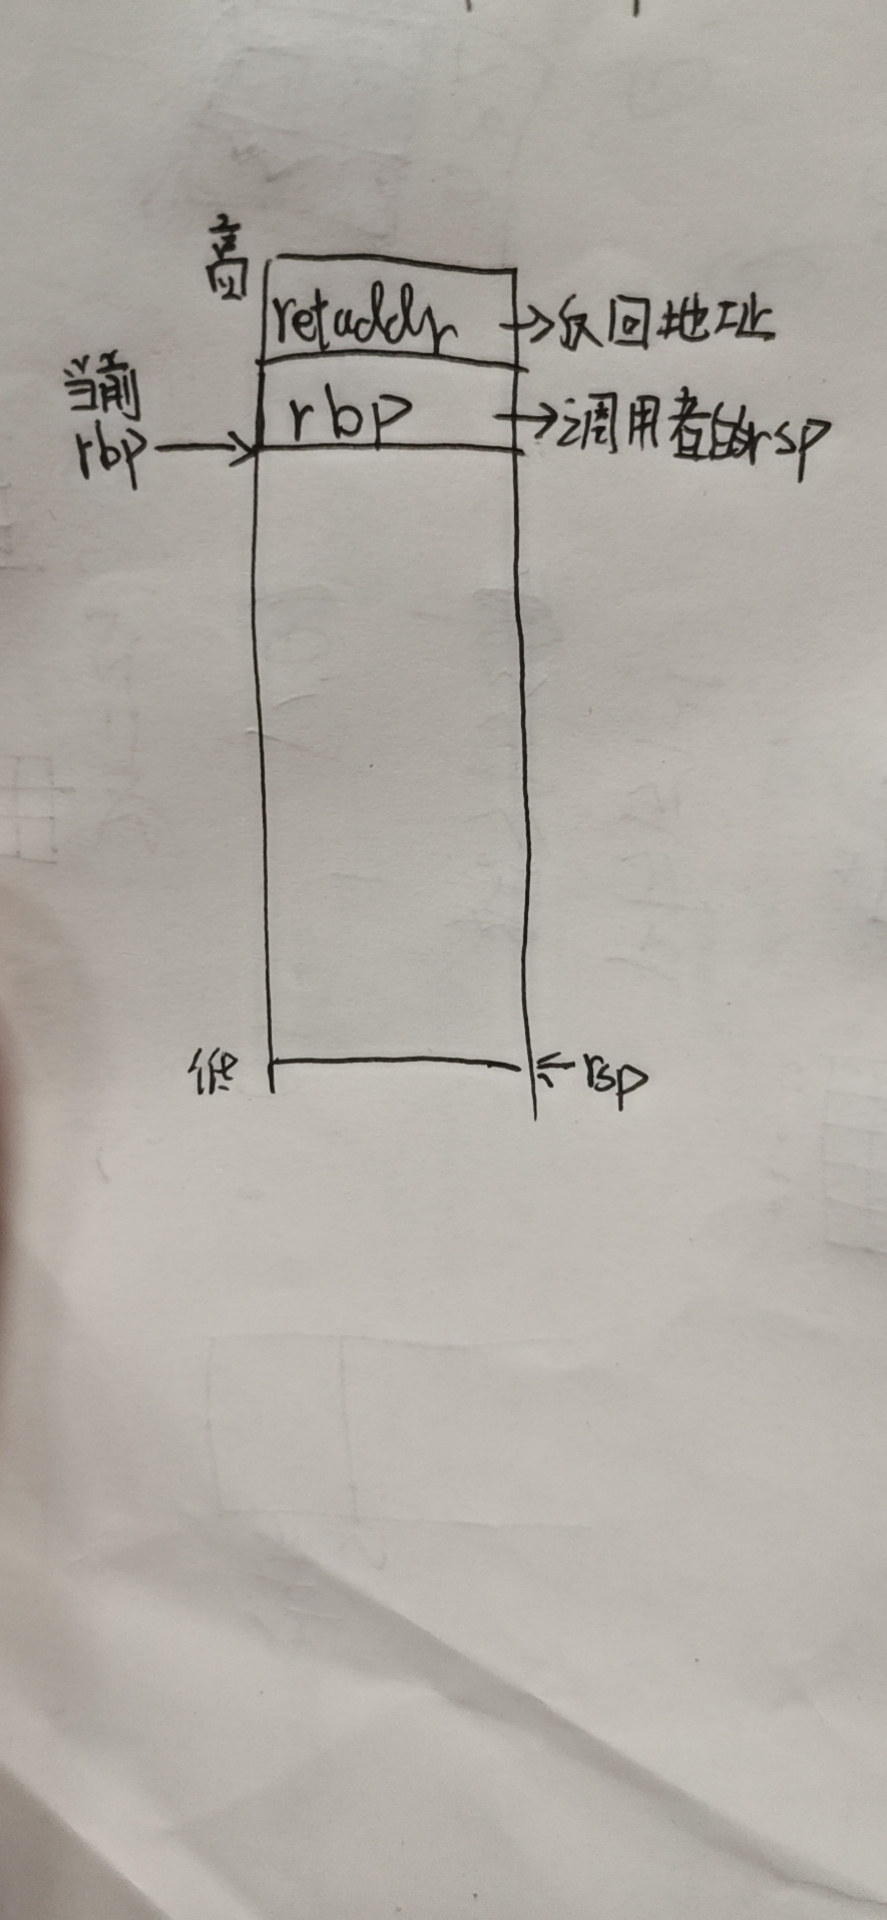 高
retaddr → 返回地址
当前
rbp → rbp → 调用者的rsp
低 ← rsp